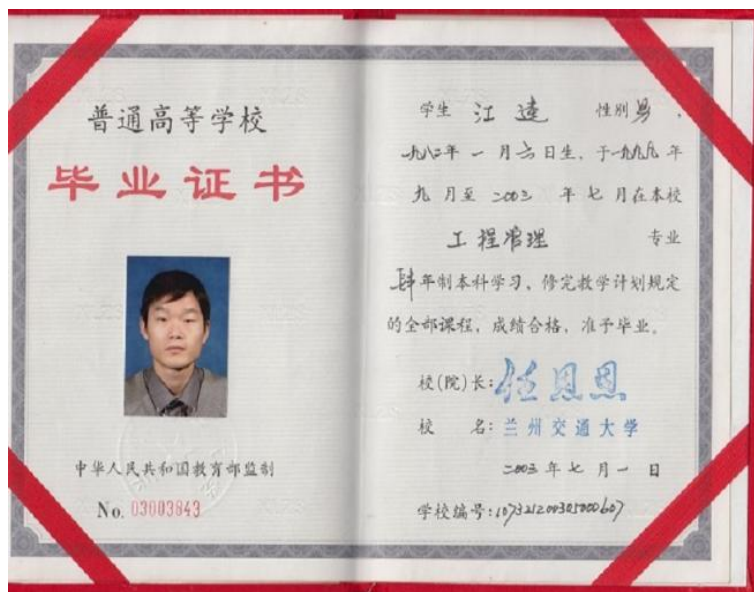 普通高等学校
毕业证书
中华人民共和国教育部监制
No. 03003843
学生 江逵 性别 男 ,
一九八二年 一 月 六 日生, 于一九九九 年
九 月至 二〇〇三 年 七 月在本校
工程管理 专业
肆年制本科学习, 修完教学计划规定
的全部课程, 成绩合格, 准予毕业。
校(院)长: 任恩恩
校 名: 兰州交通大学
二〇〇三 年 七 月 一 日
学校编号: 107321200305000607